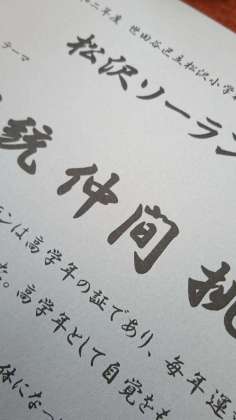 二年度 世田谷区立松沢小学
テーマ
松沢ソーラン
統 仲間 挑
ランは高学年の証であり、毎年運
た。高学年として自覚をも
体になっ